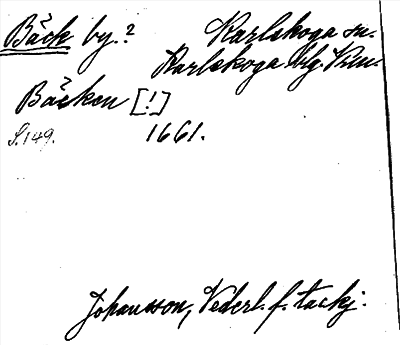 Bäck by.? Karlskoga sn.
Karlskoga bg. Vrm.
Bäcken [!]
S. 149. 1661.
Johansson, Vederl. f. tackj.